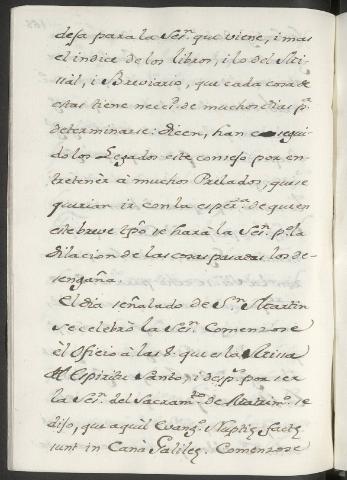 desa para la Ses.ⁿ que viene, i mas
el indice de los libros, i lo del Mi-
ssàl, i Breviario, que cada cosa de
estas tiene neces.ᵈ de muchos dias p.ᵃ
determinarse: Dicen, han segui-
do los Legados este consejo por en-
tretenèr à muchos Prelados, que se
querian ir con la esper.ᶻᵃ de que en
este breve tpo se harà la Ses.ⁿ p.ʳ la
dilacion de las cosas pasadas los de-
sengaña.
El dia señalado de S.ⁿ Martin
se celebrò la Ses.ⁿ Comenzose
èl Oficio à las 8. que es la Missa
Espiritu Santo, i desp.ˢ por ser
la Ses.ⁿ del Sacram.ᵗᵒ de Matrim.ᵒ se
dijo, que aquil Evang.ᵒ Nuptiæ factæ
sunt in Canà Galileæ. Comenzose